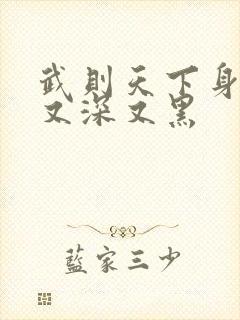 武則天下身
又深又黑
藍家三少